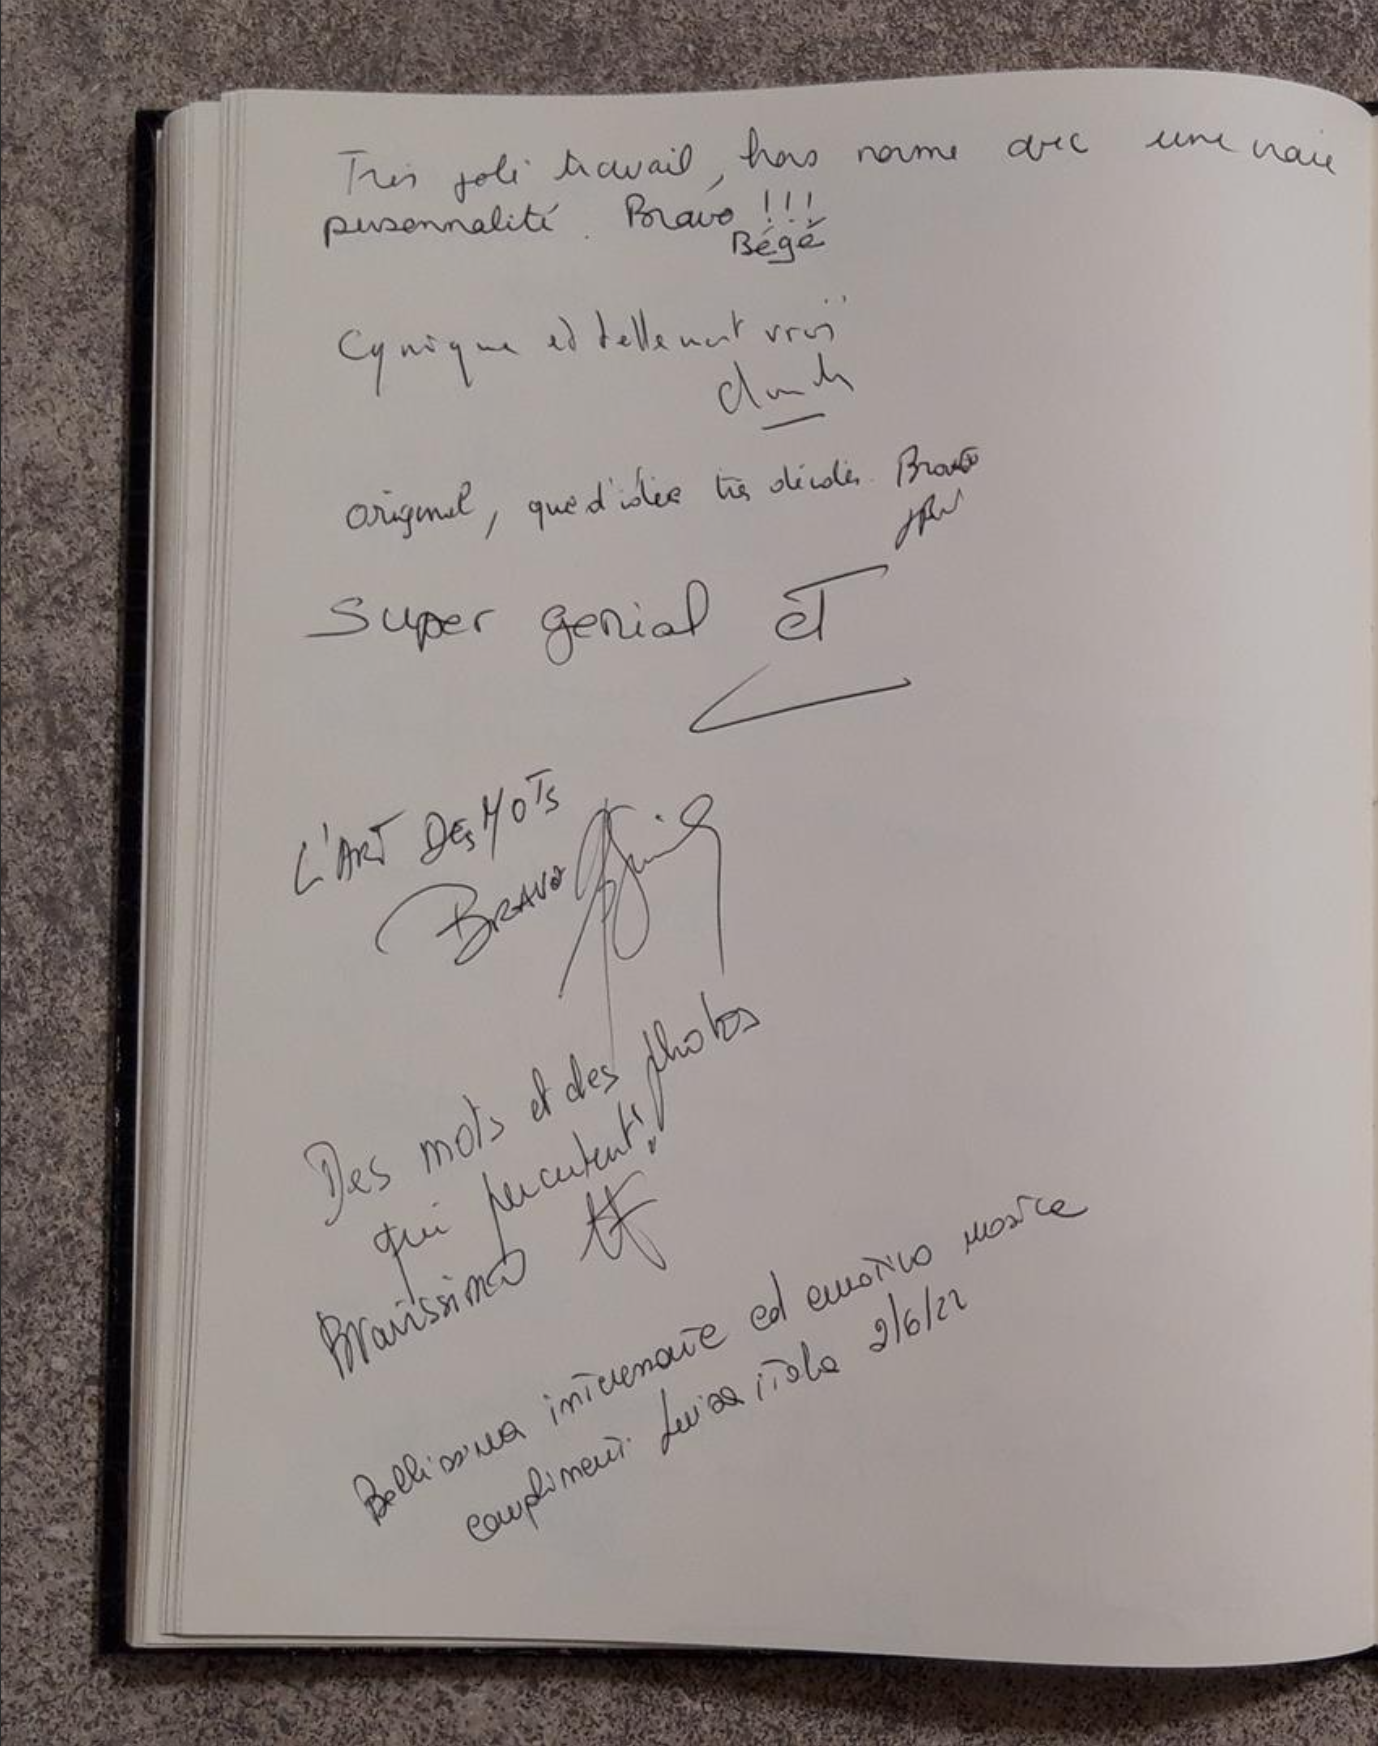 Très joli travail, hors norme avec une vraie
personnalité. Bravo !!!
Bégé
Cynique et tellement vrai
original, que d'idée très décidés. Bravo
Super genial ET
L'ART DES MOTS
BRAVO
Des mots et des photos
qui percutent !
Bravissimo
Bellissima interessante ed emotiva mostra
complimenti. Luisa 2/6/22